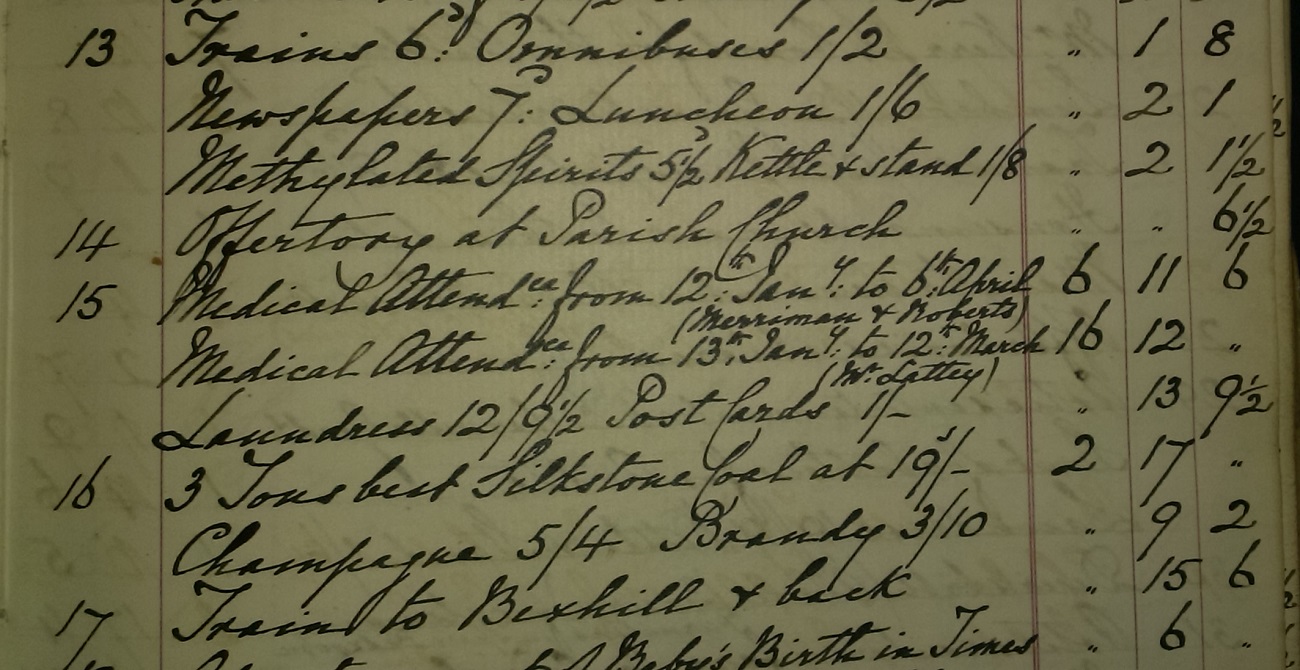 13 Trains 6d: Omnibuses 1/2 " 1 8
Newspapers 7d: Luncheon 1/6 " 2 1
Methylated Spirits 5½d Kettle & stand 1/8 " 2 1½
14 Offertory at Parish Church " " 6½
15 Medical Attendce: from 12th: Jany: to 6th: April 6 11 6
(Merriman & Roberts)
Medical Attendce: from 13th: Jany: to 12th: March 16 12 "
(Mr. Lattey)
Laundress 12/9½ Post Cards 1/- " 13 9½
16 3 Tons best Silkstone Coal at 19/- 2 17 "
Champagne 5/4 Brandy 3/10 " 9 2
17 Train to Bexhill & back " 15 6
of Baby's Birth in Times " 6 "